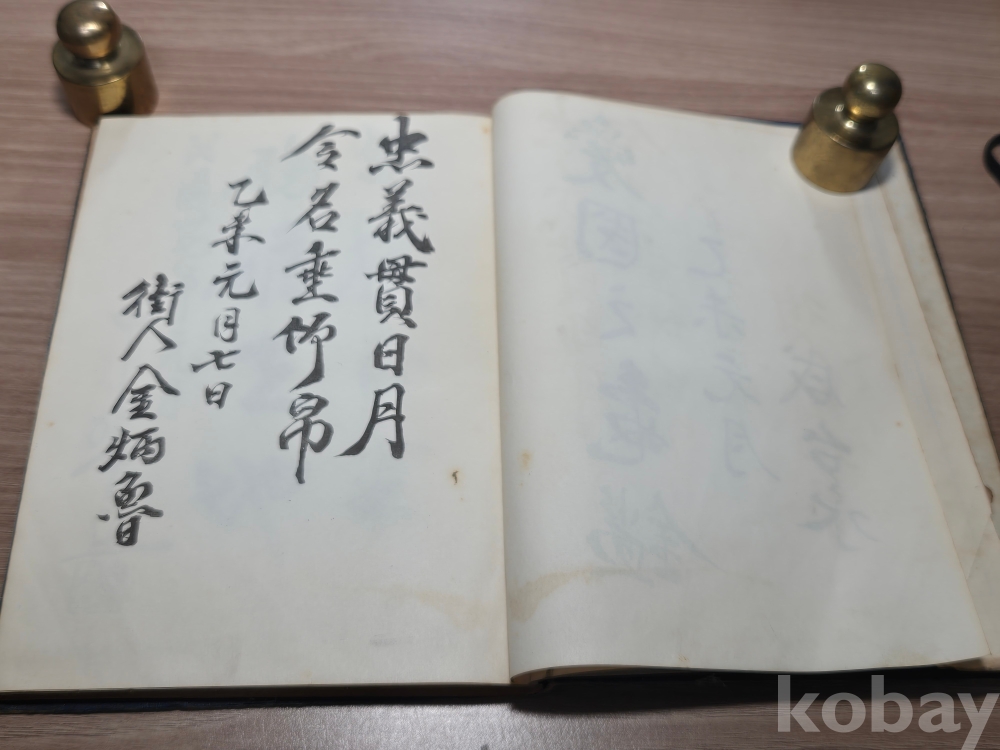 忠義貫日月
令名垂竹帛
乙未元月七日
街人金炳魯
kobay